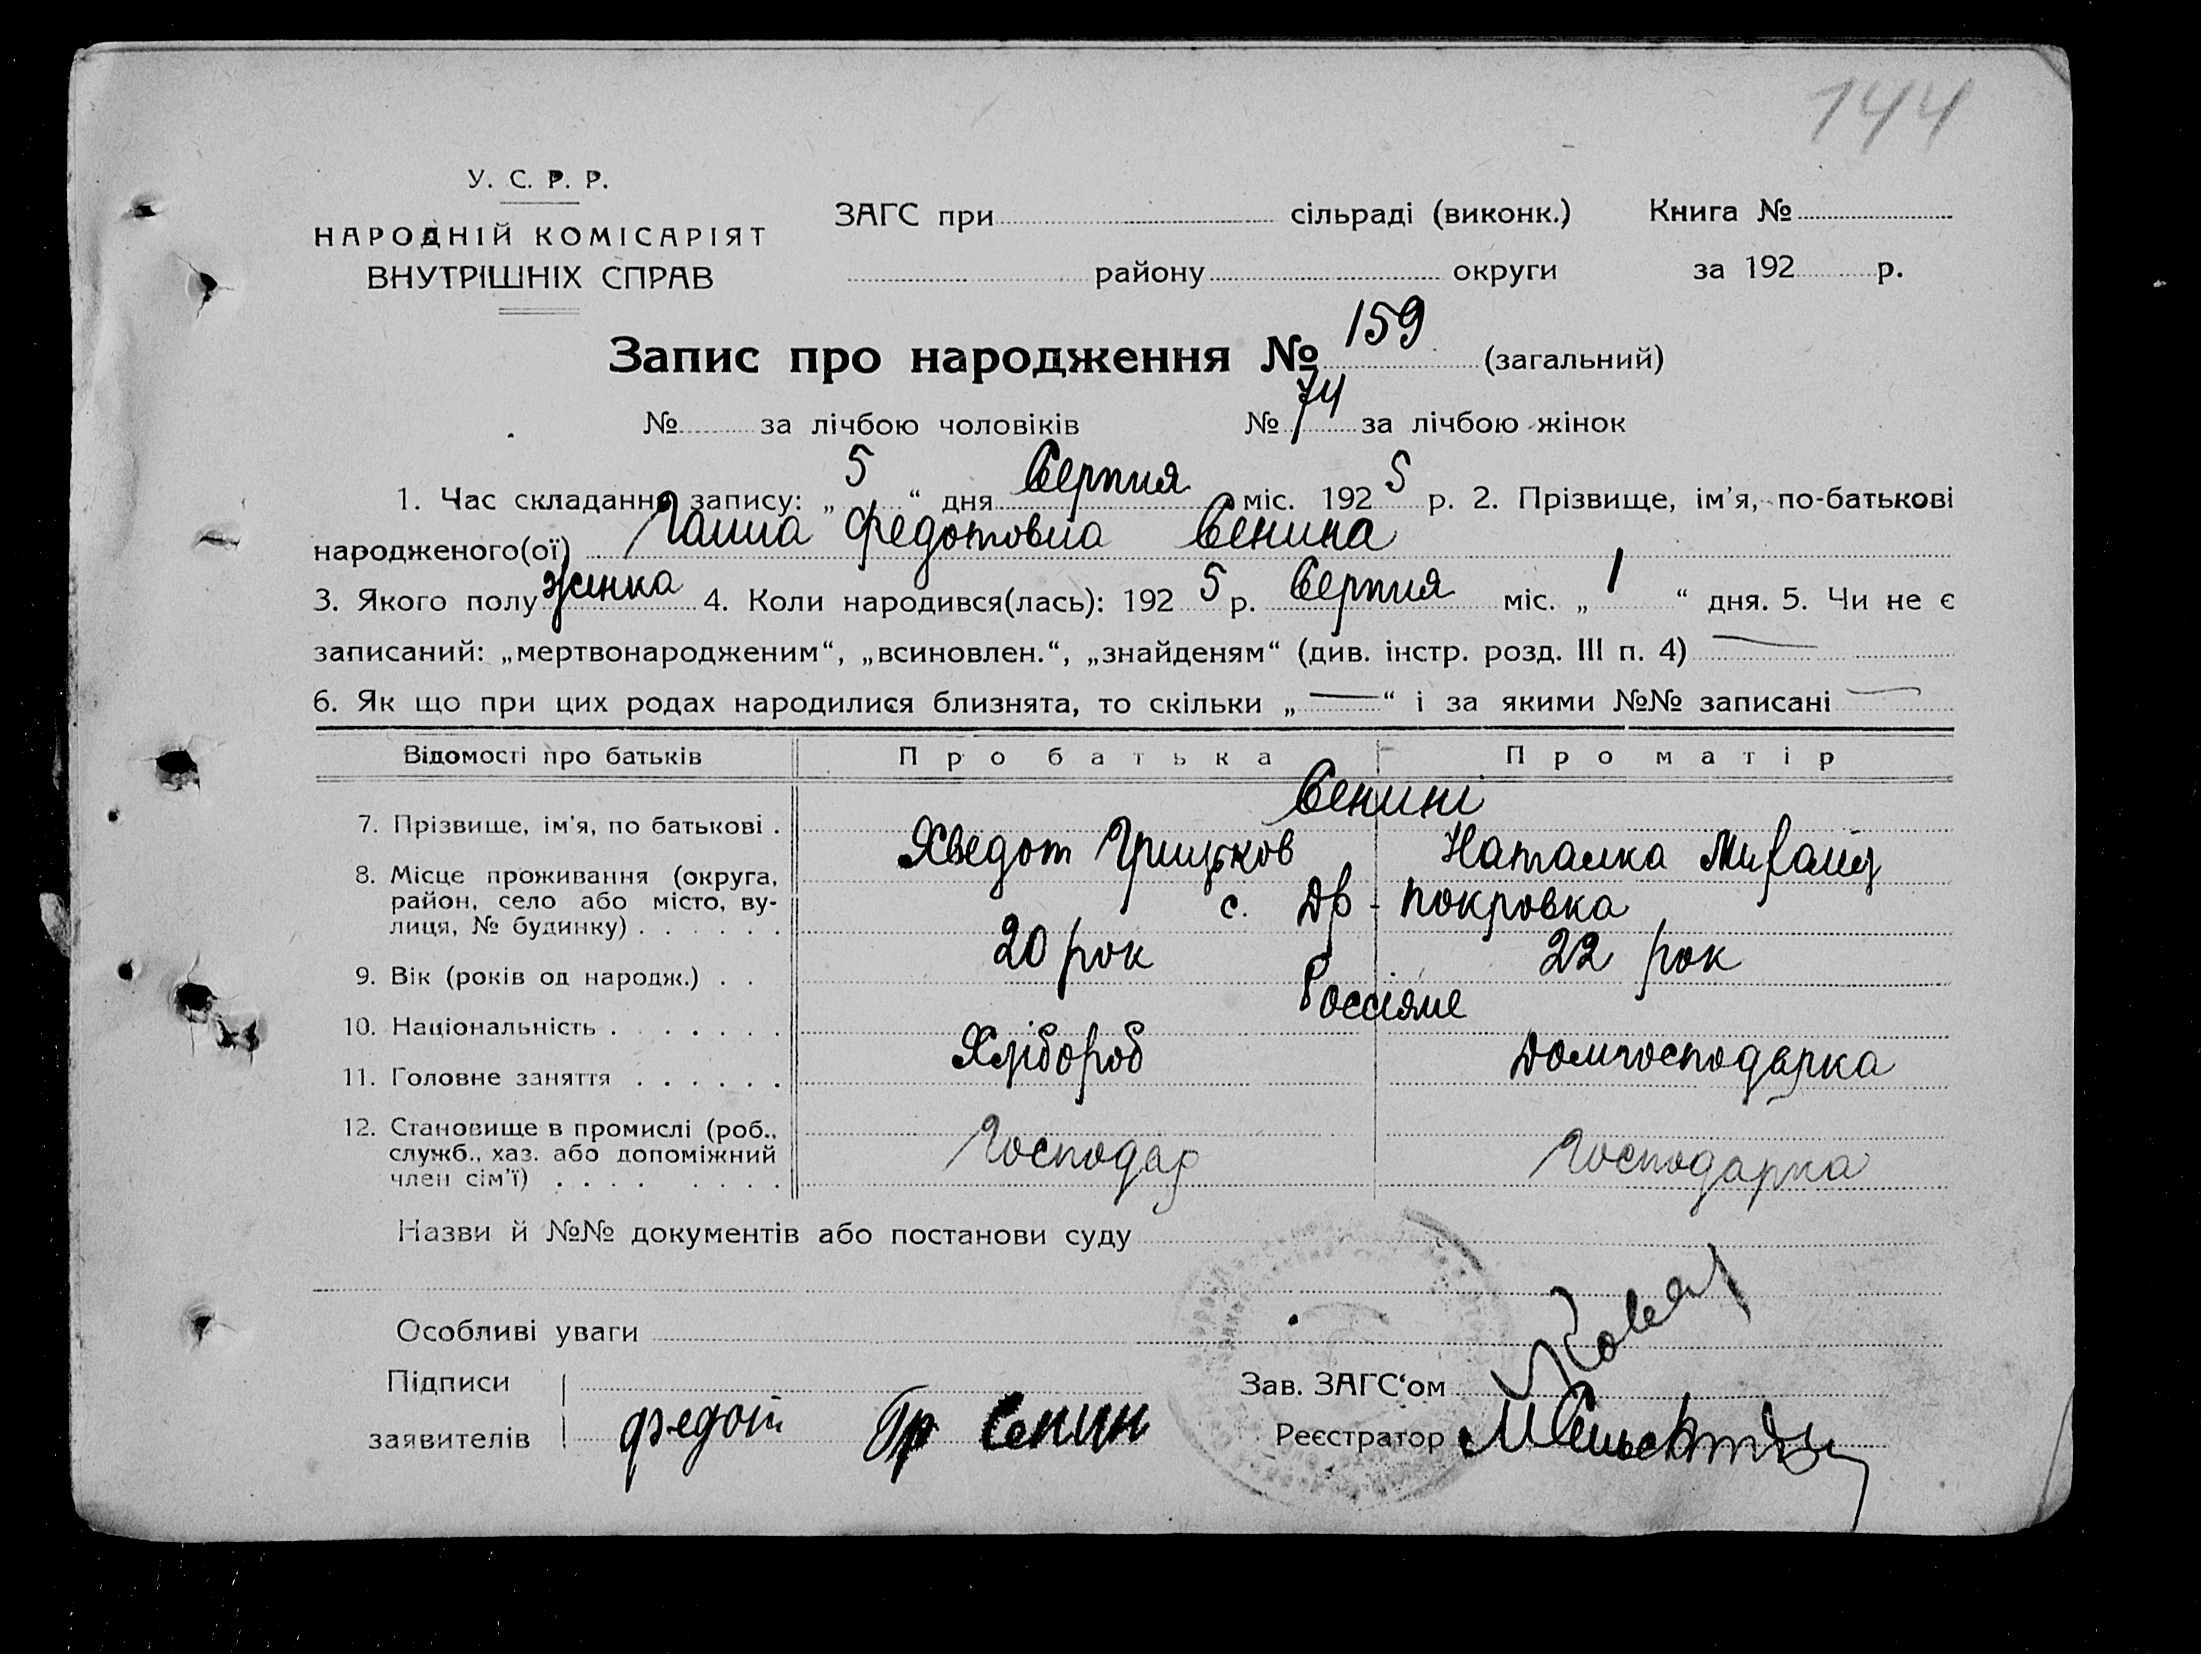 144
У. С. Р. Р.
НАРОДНІЙ КОМІСАРІЯТ
ВНУТРІШНІХ СПРАВ
ЗАГС при сільраді (виконк.) Книга №
району округи за 192 р.
Запис про народження № 159 (загальний)
№ за лічбою чоловіків № 74 за лічбою жінок
1. Час складання запису: „ 5 “ дня Серпня міс. 192 5 р. 2. Прізвище, ім'я, по-батькові
народженого(ої) Ганна Федотовна Сенина
3. Якого полу жинка 4. Коли народився(лась): 192 5 р. Серпня міс. „ 1 “ дня. 5. Чи не є
записаний: „мертвонародженим“, „всиновлен.“, „знайденям“ (див. інстр. розд. III п. 4) —
6. Як що при цих родах народилися близнята, то скільки „ — “ і за якими №№ записані —
Відомості про батьків Про батька Про матір
Сенині
7. Прізвище, ім'я, по батькові . Хведот Грицьков Наталка
8. Місце проживання (округа, район, село або місто, ву-
лиця, № будинку) . . . . . . с. Др-Покровка
9. Вік (років од народж.) . . 20 рок 22 рок
10. Національність . . . . . . Россіяне
11. Головне заняття . . . . . . Хлібороб Домгосподарка
12. Становище в промислі (роб.,
служб., хаз. або допоміжний
член сім'ї) . . . . . . . . Господар Господарка
Назви й №№ документів або постанови суду
Особливі уваги
Підписи Зав. ЗАГС‘ом
заявителів Федот Гр Сенин Реєстратор